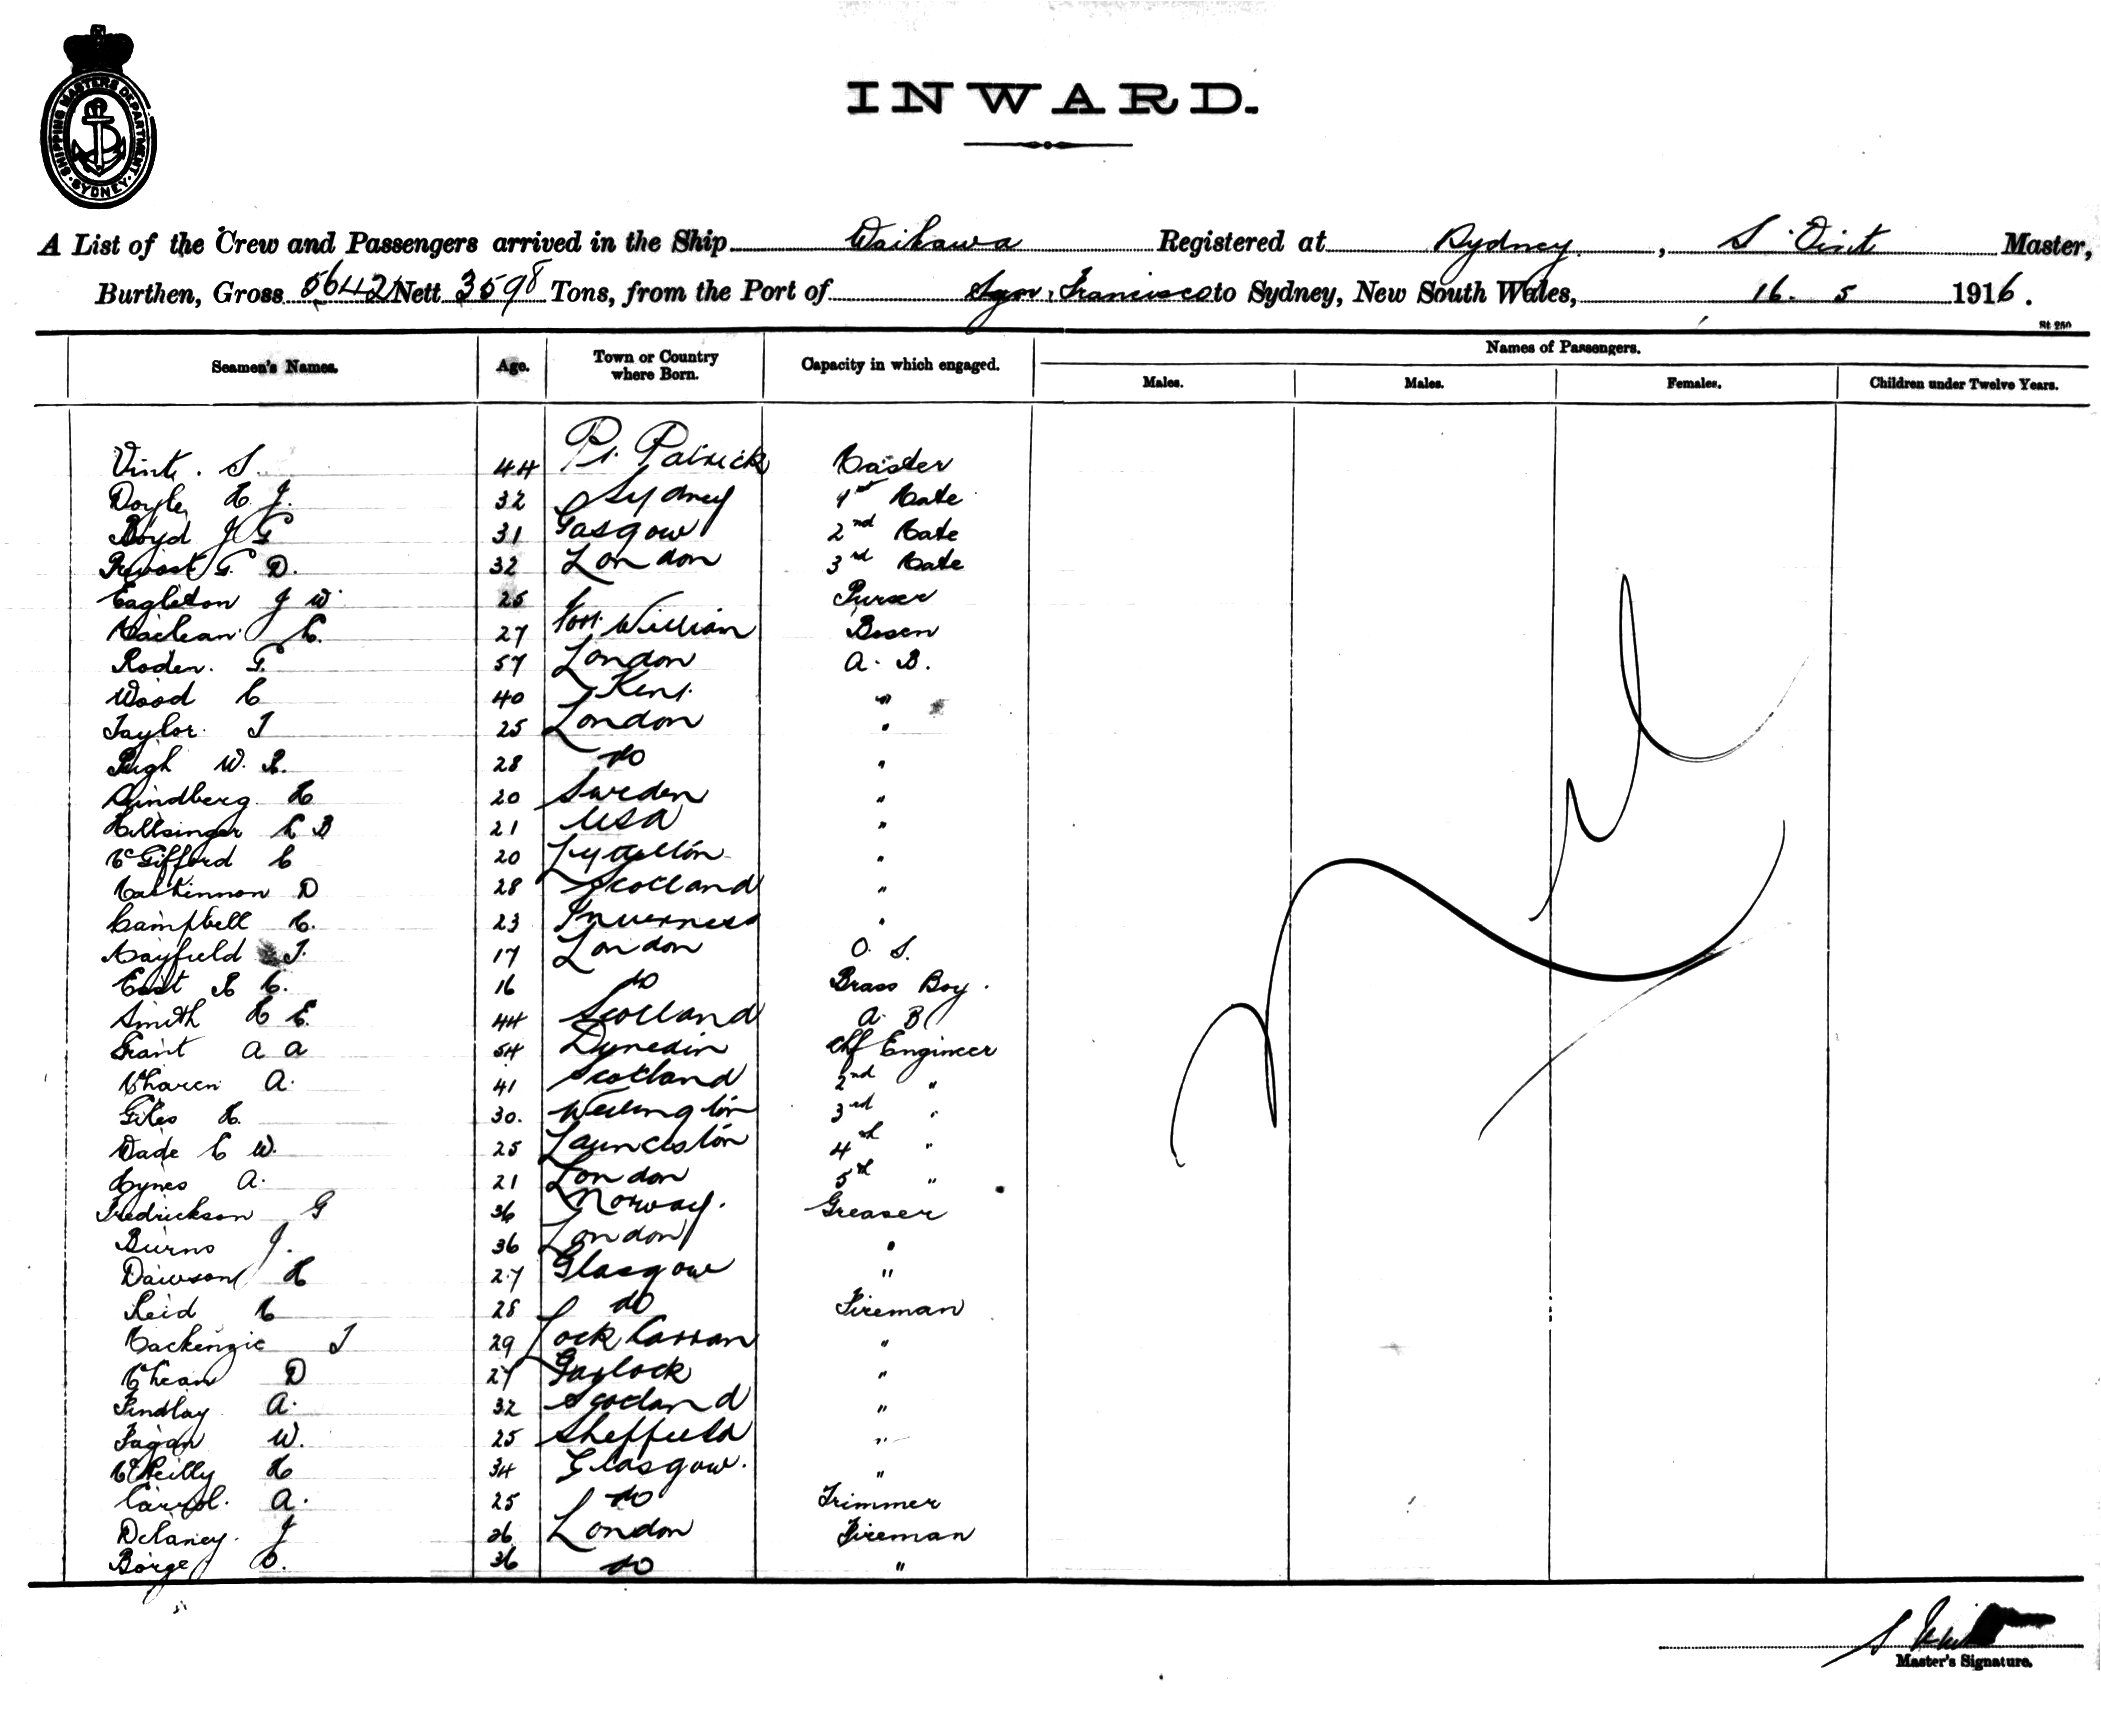 SHIPPING MASTERS DEPARTMENT · SYDNEY ·
INWARD.
A List of the Crew and Passengers arrived in the Ship Waikawa Registered at Sydney, S Vint Master,
Burthen, Gross 5642 Nett 3598 Tons, from the Port of San Francisco to Sydney, New South Wales, 16. 5 1916.
St 250
Seamen's Names. Age. Town or Country where Born. Capacity in which engaged. Names of Passengers.
Males. Males. Females. Children under Twelve Years.
Vint. S. 44 Pt. Patrick Master
Doyle H J. 32 Sydney 1st Mate
Boyd J G 31 Gasgow 2nd Mate
Prevost G. D. 32 London 3rd Mate
Eagleton J W. 25 Purser
Maclean M. 27 Fort William Bosen
Roden. G. 57 London A. B.
Wood C 40 Kent "
Taylor. T 25 London "
Pugh W. R. 28 do "
Lindberg H 20 Sweden "
Hillsinger C B 21 USA "
McGifford C 20 Lyttelton "
MacKinnon D 28 Scotland "
Campbell M. 23 Inverness "
Mayfield T. 17 London O. S.
East R C. 16 do Brass Boy.
Smith H E. 44 Scotland A. B
Grant A A 54 Dunedin Chf Engineer
McLaren A. 41 Scotland 2nd "
Giles H. 30. Wellington 3rd "
Wade C W. 25 Launceston 4th "
Hynes A. 21 London 5th "
Fredrickson G 36 Norway. Greaser
Burns J. 36 London "
Dawson H 27 Glasgow "
Reid M 28 do Fireman
Mackenzie T 29 Lock Carran "
McLean D 27 Garlock "
Findlay A. 32 Scotland "
Fagan W. 25 Sheffield "
McReilly H 34 Glasgow. "
Carrol. A. 25 do Trimmer
Delaney. J 26 London Fireman
Borge O. 36 do "
Nil
S Vint
Master's Signature.